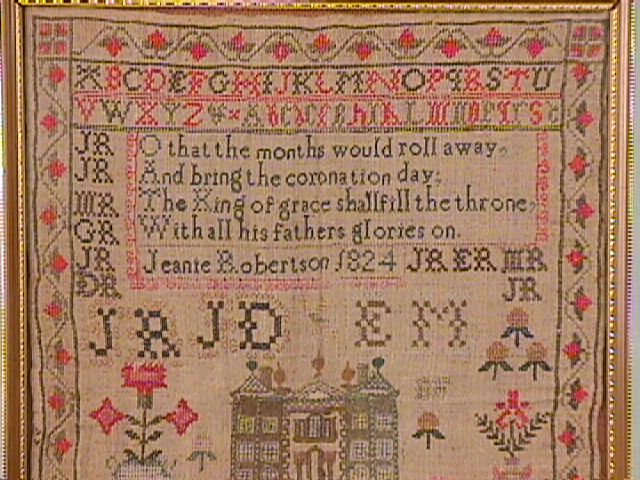 A B C D E F G H I J K L M N O P Q R S T U
V W X Y Z
JR
JR
MR
GR
JR
DR
O that the months would roll away,
And bring the coronation day;
The King of grace shall fill the throne,
With all his fathers glories on.
Jeanie Robertson 1824 JR ER MR
JR
JR JD EM